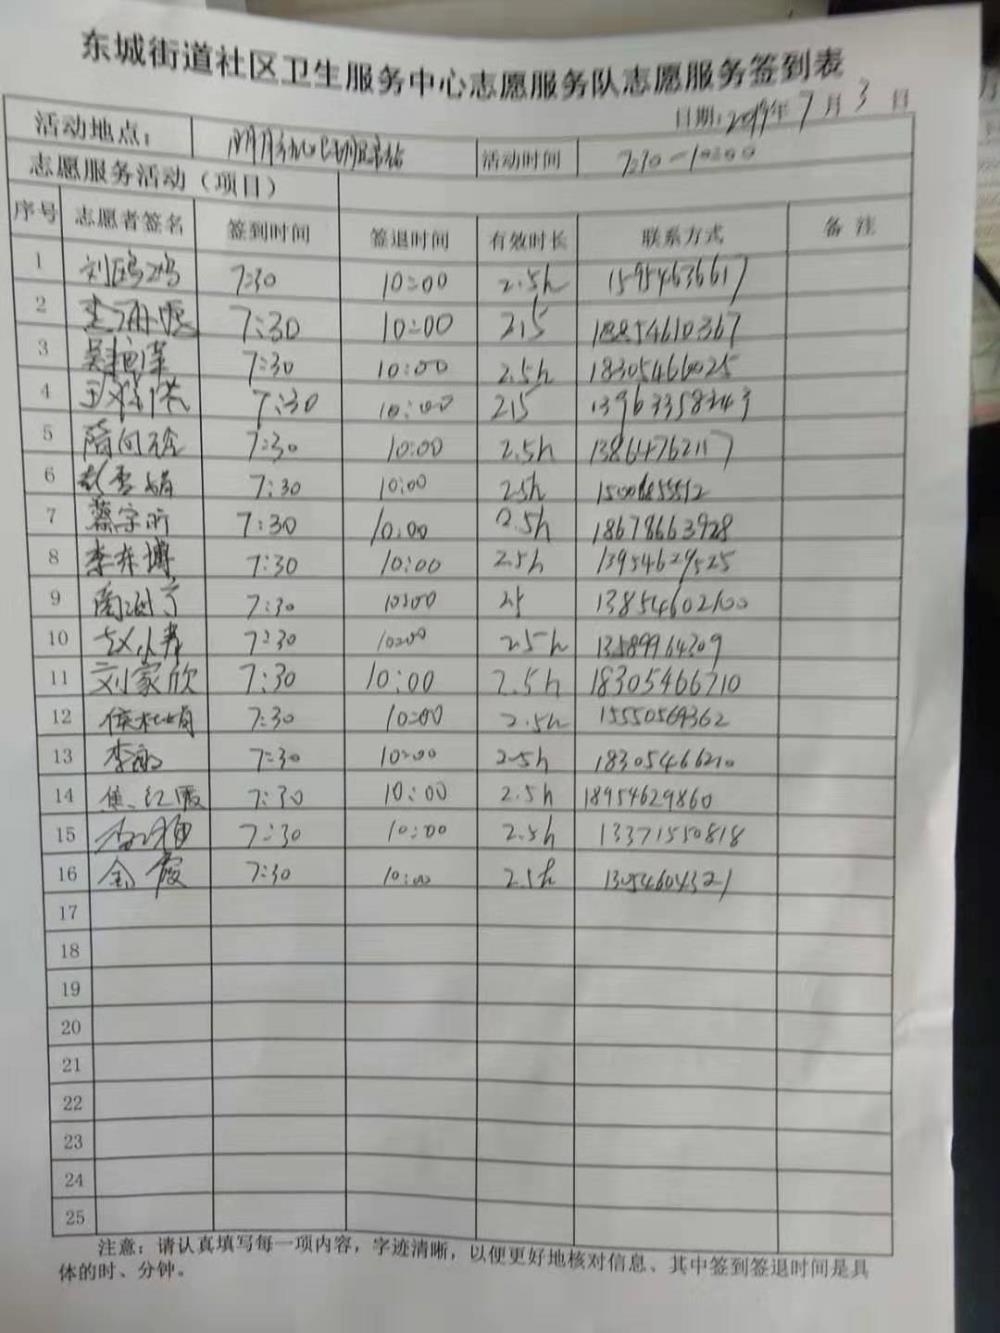 东城街道社区卫生服务中心志愿服务队志愿服务签到表
日期:2019年7月3日
活动地点: 活动时间 7:30-10:00
志愿服务活动（项目）
序号 志愿者签名 签到时间 签退时间 有效时长 联系方式 备注
1 7:30 10:00 2.5h 15954636617
2 7:30 10:00 2.5 18854610367
3 7:30 10:00 2.5h 18305466025
4 7:30 10:00 2.5
5 7:30 10:00 2.5h 13864762117
6 7:30 10:00 2.5h
7 蔡宗昕 7:30 10:00 2.5h 18678663928
8 李奔博 7:30 10:00 2.5h 13954629525
9 7:30 10:00 13854602100
10 7:30 10:00 2.5h 13589964309
11 刘家欣 7:30 10:00 2.5h 18305466710
12 7:30 10:00 2.5h 15550569362
13 李敏 7:30 10:00 2.5h 18305466210
14 焦红霞 7:30 10:00 2.5h 18954629860
15 7:30 10:00 2.5h 13371550818
16 金霞 7:30 10:00 2.5h 13054604321
17
18
19
20
21
22
23
24
25
注意：请认真填写每一项内容，字迹清晰，以便更好地核对信息、其中签到签退时间是具
体的时、分钟。